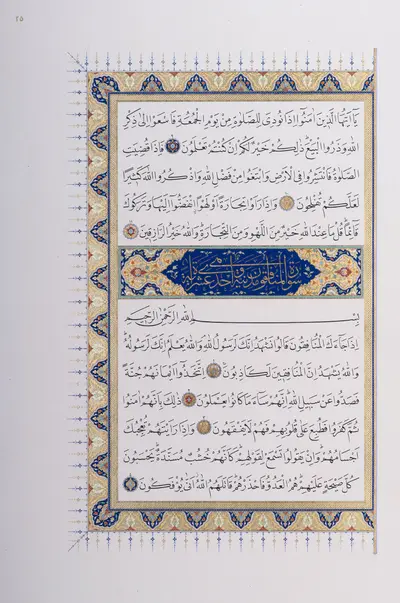 ٢٥
يَا أَيُّهَا الَّذِينَ آمَنُوا إِذَا نُودِيَ لِلصَّلَوةِ مِنْ يَوْمِ الْجُمُعَةِ فَاسْعَوْا إِلَى ذِكْرِ
اللَّهِ وَذَرُوا الْبَيْعَ ذَلِكُمْ خَيْرٌ لَكُمْ إِنْ كُنْتُمْ تَعْلَمُونَ فَإِذَا قُضِيَتِ
الصَّلَوةُ فَانْتَشِرُوا فِي الْأَرْضِ وَابْتَغُوا مِنْ فَضْلِ اللَّهِ وَاذْكُرُوا اللَّهَ كَثِيرًا
لَعَلَّكُمْ تُفْلِحُونَ وَإِذَا رَأَوْا تِجَارَةً أَوْ لَهْوًا انْفَضُّوا إِلَيْهَا وَتَرَكُوكَ
قَائِمًا قُلْ مَا عِنْدَ اللَّهِ خَيْرٌ مِنَ اللَّهْوِ وَمِنَ التِّجَارَةِ وَاللَّهُ خَيْرُ الرَّازِقِينَ
سورة المنافقون مدنية وهي احدى عشرة آية
بِسْمِ اللَّهِ الرَّحْمَنِ الرَّحِيمِ
إِذَا جَاءَكَ الْمُنَافِقُونَ قَالُوا نَشْهَدُ إِنَّكَ لَرَسُولُ اللَّهِ وَاللَّهُ يَعْلَمُ إِنَّكَ لَرَسُولُهُ
وَاللَّهُ يَشْهَدُ إِنَّ الْمُنَافِقِينَ لَكَاذِبُونَ إِتَّخَذُوا أَيْمَانَهُمْ جُنَّةً
فَصَدُّوا عَنْ سَبِيلِ اللَّهِ إِنَّهُمْ سَاءَ مَا كَانُوا يَعْمَلُونَ ذَلِكَ بِأَنَّهُمْ آمَنُوا
ثُمَّ كَفَرُوا فَطُبِعَ عَلَى قُلُوبِهِمْ فَهُمْ لَا يَفْقَهُونَ وَإِذَا رَأَيْتَهُمْ تُعْجِبُكَ
أَجْسَامُهُمْ وَإِنْ يَقُولُوا تَسْمَعْ لِقَوْلِهِمْ كَأَنَّهُمْ خُشُبٌ مُسَنَّدَةٌ يَحْسَبُونَ
كُلَّ صَيْحَةٍ عَلَيْهِمْ هُمُ الْعَدُوُّ فَاحْذَرْهُمْ قَاتَلَهُمُ اللَّهُ أَنَّى يُؤْفَكُونَ